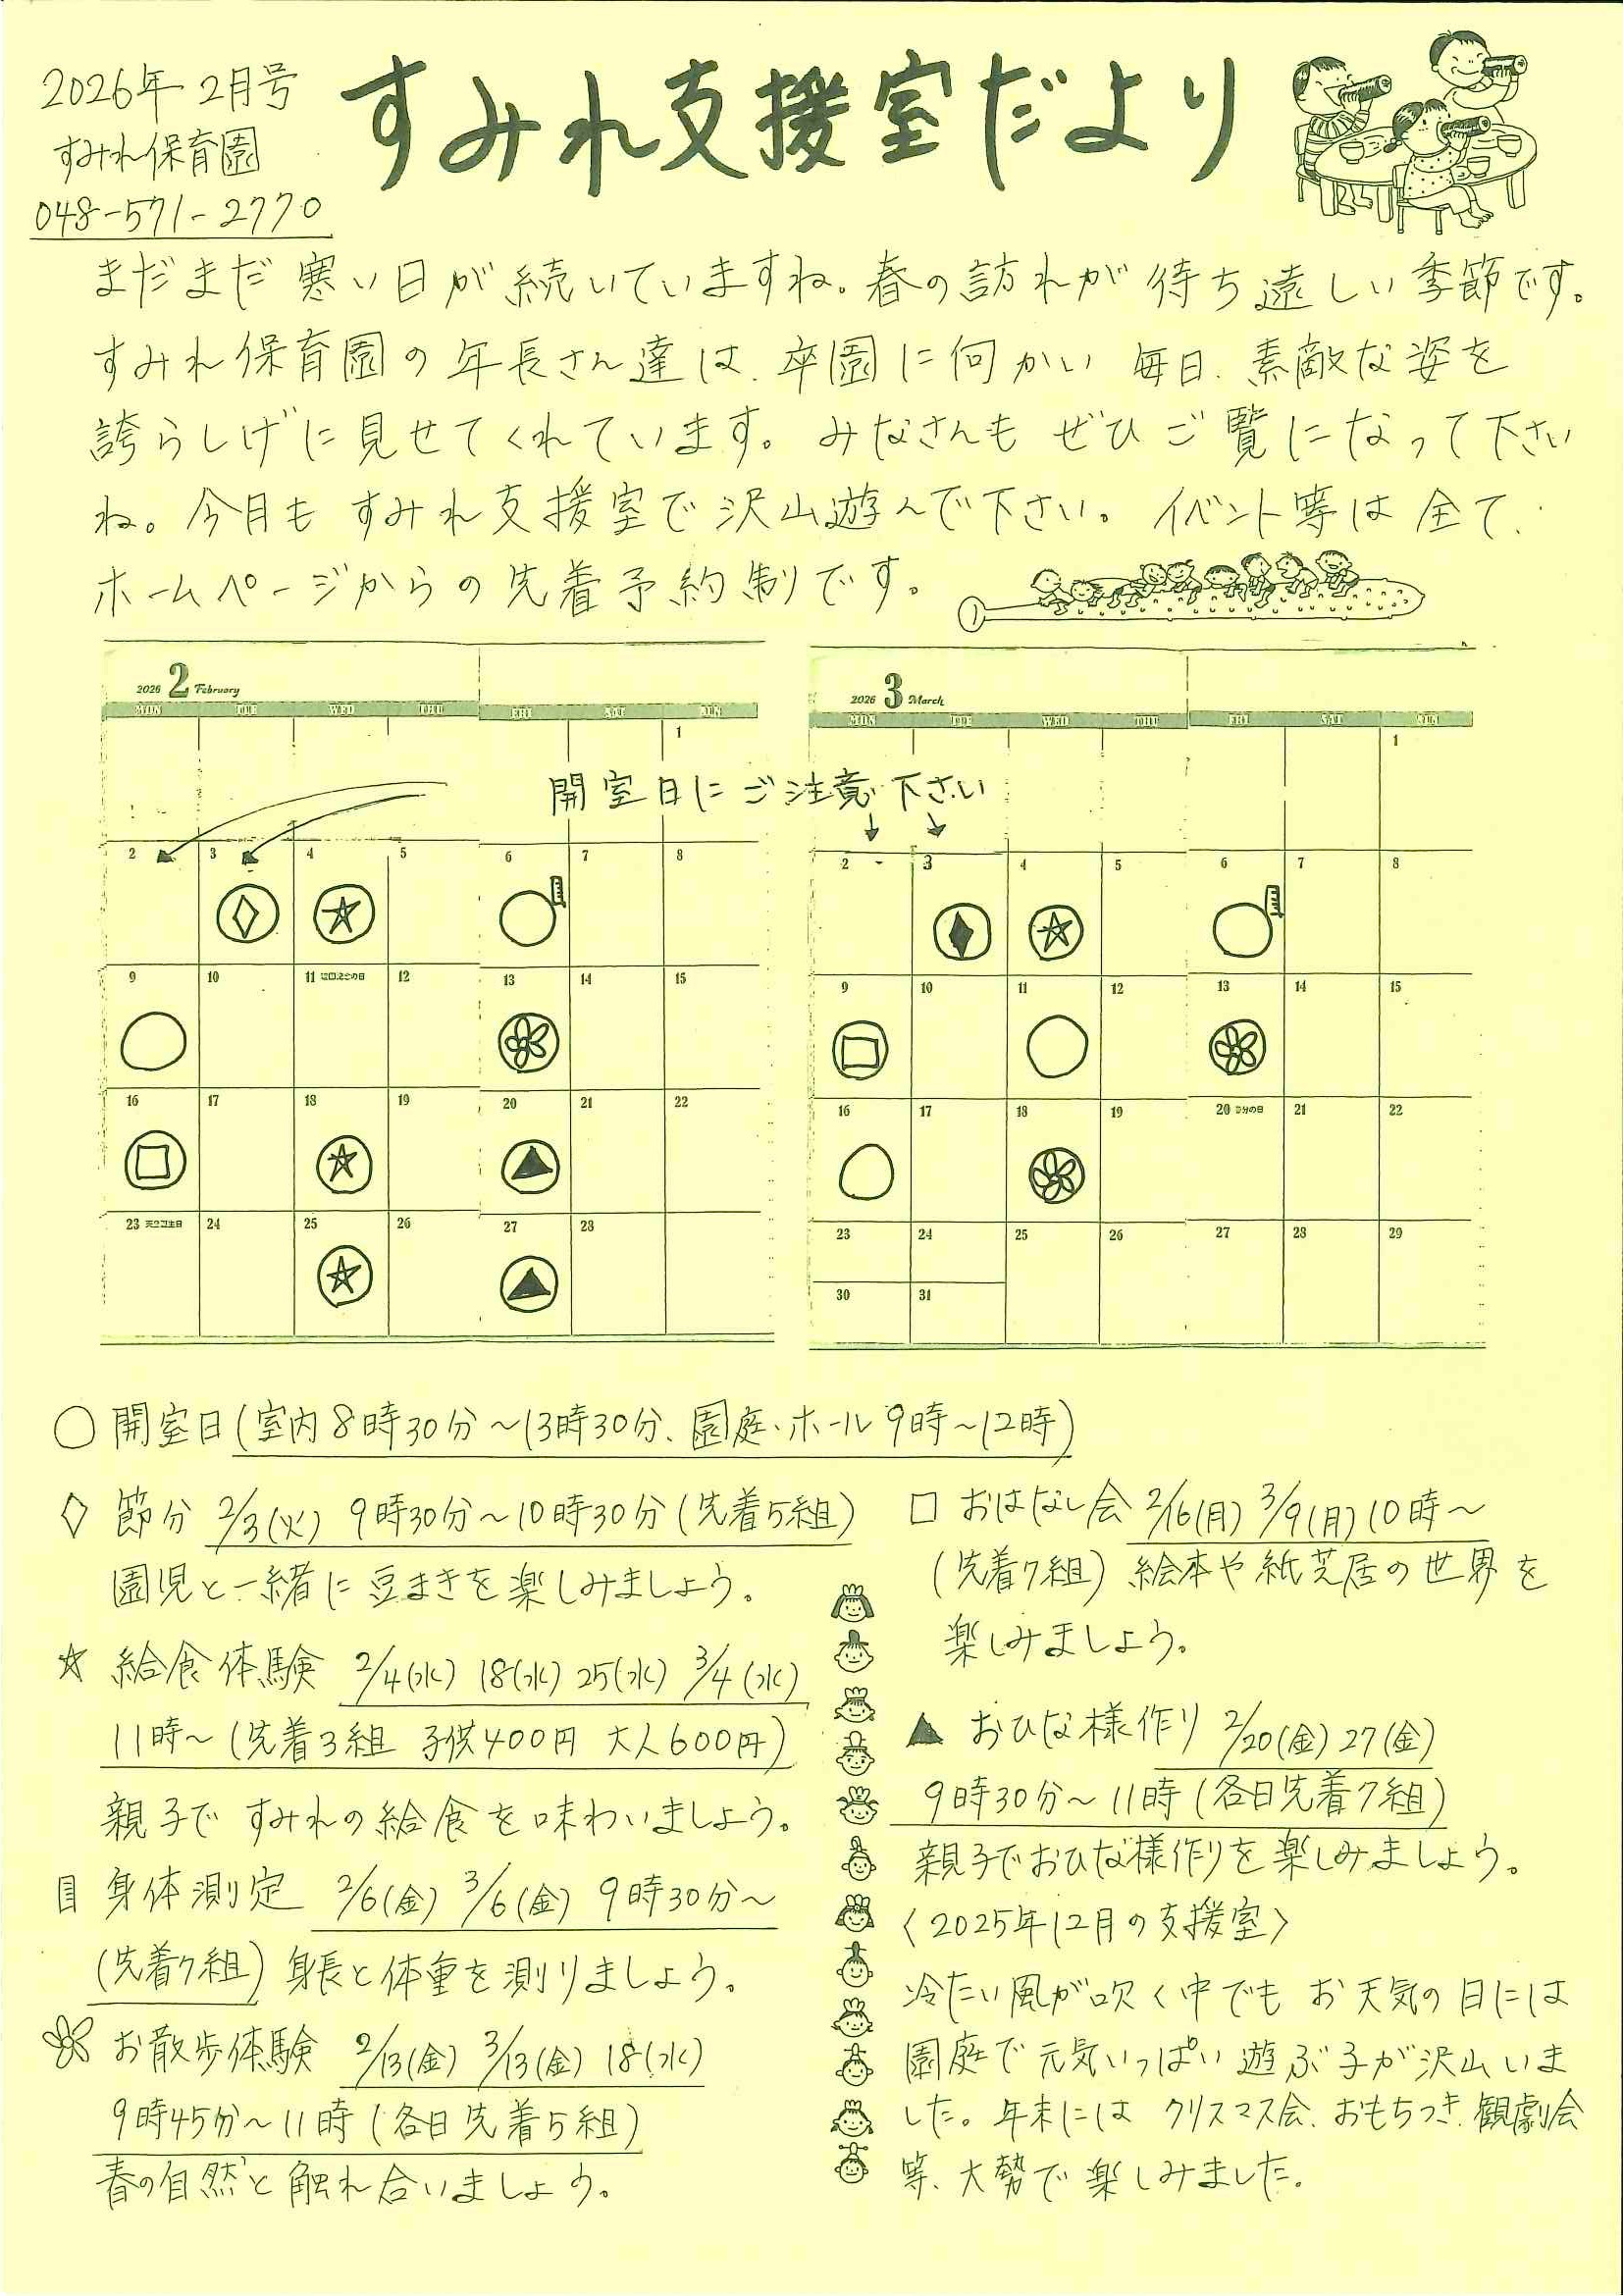 2026年 2月号
すみれ保育園
048-571-2770
すみれ支援室だより
まだまだ寒い日が続いていますね。春の訪れが待ち遠しい季節です。
すみれ保育園の年長さん達は、卒園に向かい 毎日、素敵な姿を
誇らしげに見せてくれています。みなさんも ぜひご覧になって下さい
ね。今月も すみれ支援室で沢山遊んで下さい。イベント等は全て、
ホームページからの先着予約制です。
2026 2 February
MON TUE WED THU FRI SAT SUN
1
2 3 4 5 6 7 8
9 10 11 建国記念の日 12 13 14 15
16 17 18 19 20 21 22
23 天皇誕生日 24 25 26 27 28
開室日にご注意下さい
2026 3 March
MON TUE WED THU FRI SAT SUN
1
2 3 4 5 6 7 8
9 10 11 12 13 14 15
16 17 18 19 20 春分の日 21 22
23 24 25 26 27 28 29
30 31
○ 開室日(室内8時30分～13時30分、園庭・ホール9時～12時)
◇ 節分 2/3(火) 9時30分～10時30分(先着5組)
園児と一緒に豆まきを楽しみましょう。
☆ 給食体験 2/4(水) 18(水) 25(水) 3/4(水)
11時～(先着3組 子供400円 大人600円)
親子で すみれの給食を味わいましょう。
身体測定 2/6(金) 3/6(金) 9時30分～
(先着7組) 身長と体重を測りましょう。
お散歩体験 2/13(金) 3/13(金) 18(水)
9時45分～11時(各日先着5組)
春の自然と触れ合いましょう。
□ おはなし会 2/16(月) 3/9(月) 10時～
(先着7組) 絵本や紙芝居の世界を
楽しみましょう。
▲ おひな様作り 2/20(金) 27(金)
9時30分～11時(各日先着7組)
親子でおひな様作りを楽しみましょう。
〈2025年12月の支援室〉
冷たい風が吹く中でも お天気の日には
園庭で元気いっぱい遊ぶ子が沢山いま
した。年末には クリスマス会、おもちつき、観劇会
等、大勢で楽しみました。